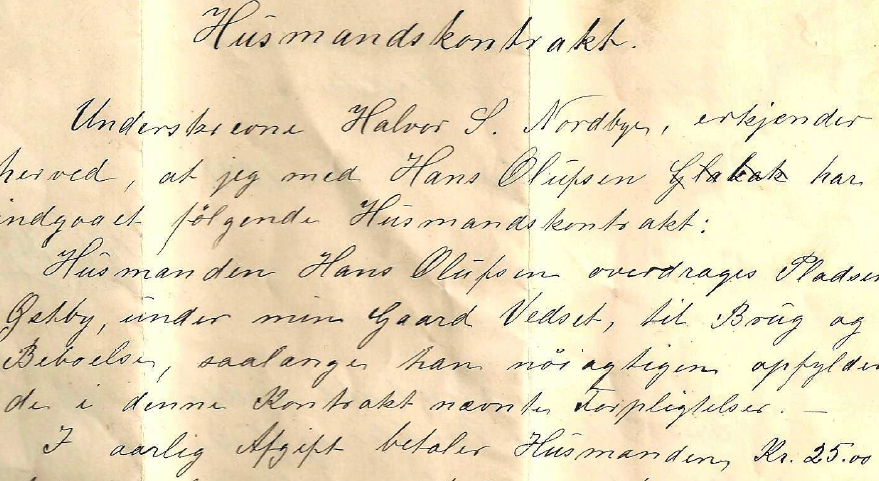 Husmandskontrakt.
Underskrevne Halvor S. Nordbye, erkjender
herved, at jeg med Hans Olufsen har
indgaaet følgende Husmandskontrakt:
Husmanden Hans Olufsen overdrages Pladsen
Østby, under min Gaard Vedset, til Brug og
Beboelse, saalænge han nøiagtigen opfylder
de i denne Kontrakt nævnte Forpligtelser. —
I aarlig Afgift betaler Husmanden, Kr. 25.00